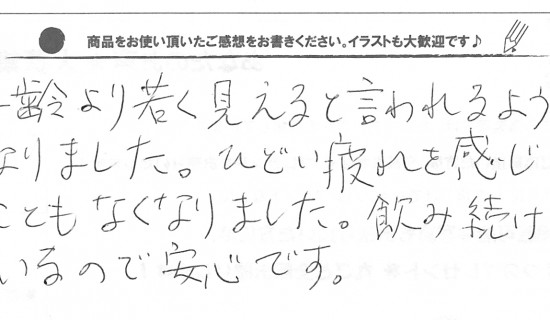 商品をお使い頂いたご感想をお書きください。イラストも大歓迎です♪
齢より若く見えると言われるよう
なりました。ひどい疲れを感じ
こともなくなりました。飲み続け
いるので安心です。